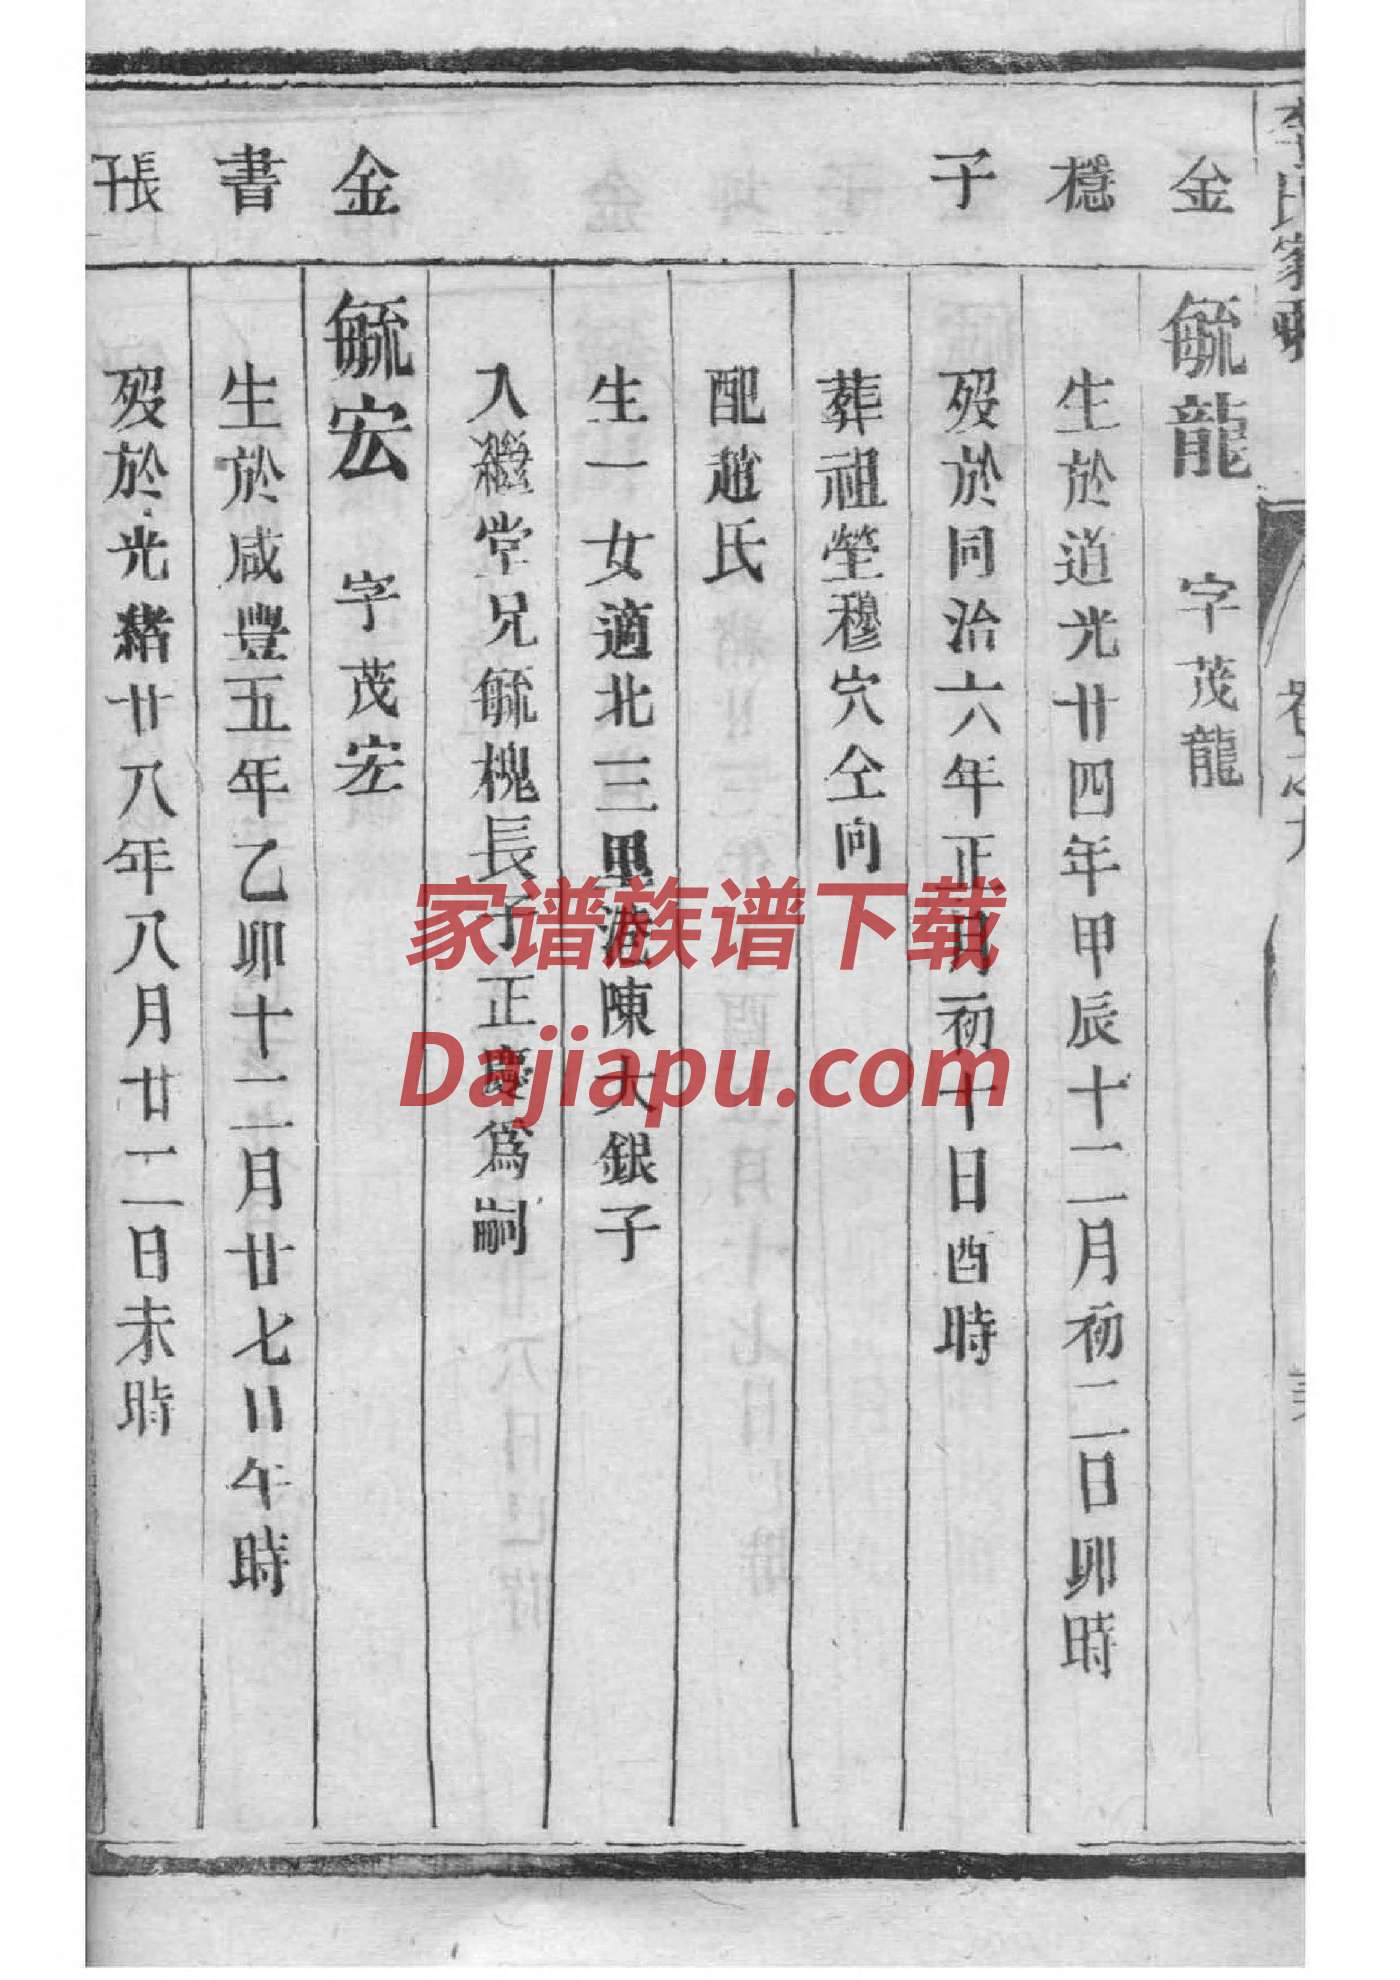 李氏家乘
金
毓龍 字茂龍
穩
生於道光廿四年甲辰十二月初二日卯時
子
歿於同治六年正月初十日酉時
葬祖塋穆穴仝向
配趙氏
生一女適北三里港陳大銀子
入繼堂兄毓槐長子正慶爲嗣
金
毓宏 字茂宏
書
生於咸豐五年乙卯十二月廿七日午時
長子
歿於光緒廿八年八月廿二日未時
家谱族谱下载
Dajiapu.com